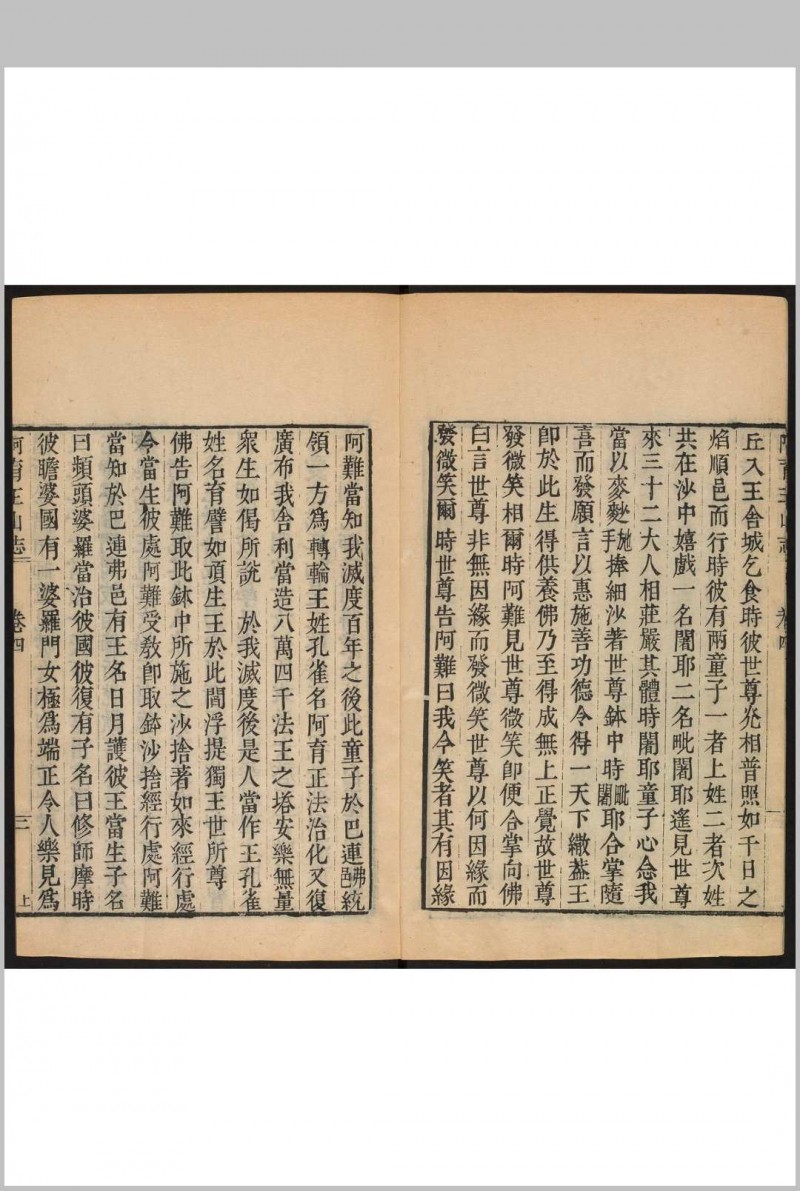 丘入王舍城乞食時彼世尊光相普照如千日之
焰順邑而行時彼有兩童子一者上姓二者次姓
共在沙中嬉戲一名闍耶二名毗闍耶遙見世尊
來三十二大人相莊嚴其體時闍耶童子心念我
當以麥麨施手捧細沙著世尊鉢中時毗闍耶合掌隨
喜而發願言以惠施善功德令得一天下繖葢王
卽於此生得供養佛乃至得成無上正覺故世尊
發微笑相爾時阿難見世尊微笑卽便合掌向佛
白言世尊非無因緣而發微笑世尊以何因緣而
發微笑爾時世尊告阿難曰我今笑者其有因緣
阿難當知我滅度百年之後此童子於巴連弗邑統
領一方爲轉輪王姓孔雀名阿育正法治化又復
廣布我舍利當造八萬四千法王之塔安樂無量
衆生如偈所說　於我滅度後是人當作王孔雀
姓名育譬如頂生王於此閻浮提獨王世所尊
佛告阿難取此鉢中所施之沙捨著如來經行處
令當生彼處阿難受敎卽取鉢沙捨經行處阿難
當知於巴連弗邑有王名日月護彼王當生子名
曰頻頭婆羅當治彼國彼復有子名曰修師摩時
彼瞻婆國有一婆羅門女極爲端正令人樂見爲
阿育王山志　卷四　三　上